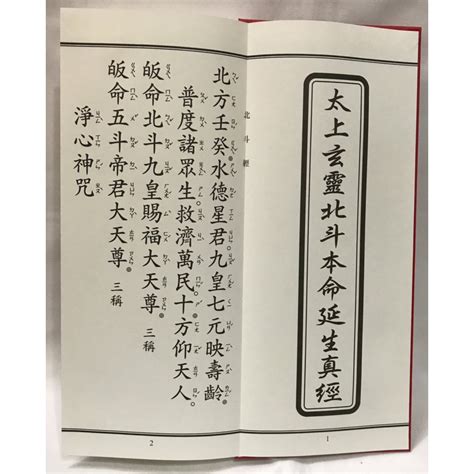 太上玄靈北斗本命延生真經
1
北斗經
北方壬癸水德星君九皇七元映壽齡。
普度諸眾生。救濟萬民。十方仰天人。
皈命北斗九皇賜福大天尊。三稱
皈命五斗帝君大天尊。三稱
淨心神咒
2